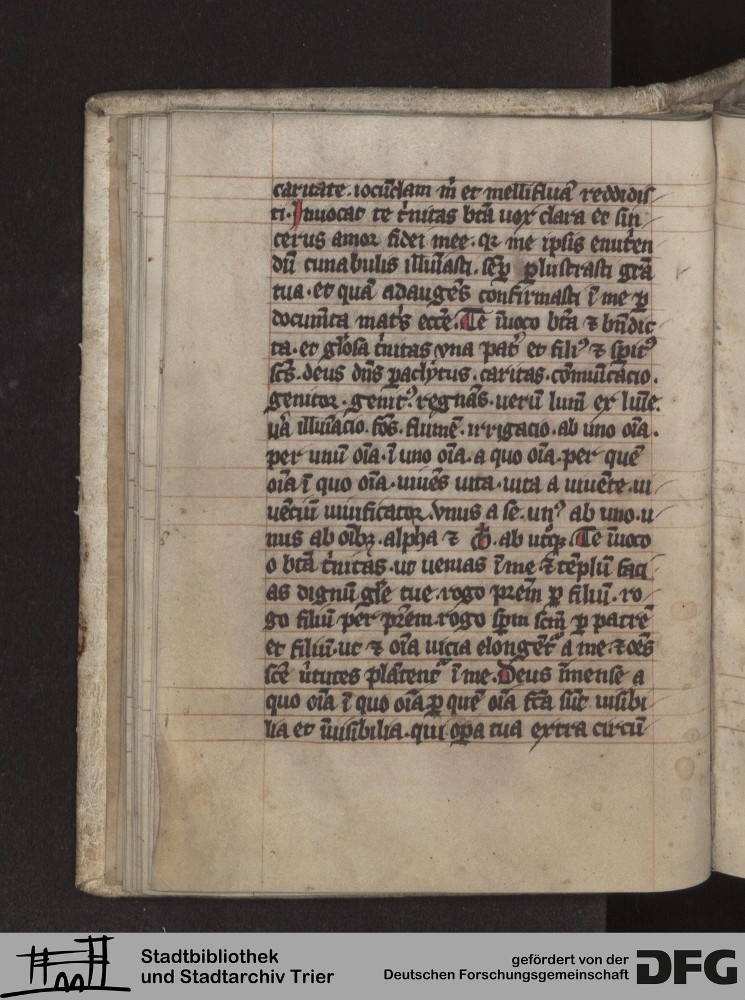 caritate. iocūdam m̄ et mellifluā reddidis
ti. Inuocat te t̄nitas bt̄a uox clara et sin
cerus amor fidei mee. qꝛ me ipsis enuten
dū cunabulis illūīasti. sēp ꝑlustrasti grā
tua. et quā adaugēs confirmasti ī me ꝑ
docum̄ta mat̄s ecc̄e. Te īuoco bt̄a ⁊ bn̄dic
ta. et gl̄osa t̄nitas vna pat̄ et filiꝰ ⁊ sp̄itꝰ
sc̄s. deus dn̄s paclytus. caritas. cōmūicacio.
genitor. genitꝰ. regnās. uerū lum̄ ex lūīe.
ūa illūīacio. fōs. flumē. irrigacio. ab uno oīa.
per unū oīa. ī uno oīa. a quo oīa. per quē
oīa ī quo oīa. uiuēs uita. uita a uiuēte. ui
uētiū uiuificator. vnus a se. unꝰ ab uno. u
nus ab oībꝫ. alpha ⁊ ō. ab utqꝫ. Te īuoco
o bt̄a t̄nitas. ut uenias ī me ⁊ tēplū faci
as dignū gl̄e tue. rogo pr̄em ꝑ filiū. ro
go filiū per pr̄em. rogo sp̄m sc̄m ꝑ patrē
et filiū. ut ⁊ oīa uicia elongēt᷑ a me ⁊ oēs
sc̄e ūtutes plātent᷑ ī me. Deus īmense a
quo oīa ī quo oīa ꝑ quē oīa fc̄a sūt uisibi
lia et īuisibilia. qui oꝑa tua extra circū
Stadtbibliothek
und Stadtarchiv Trier
gefördert von der
Deutschen Forschungsgemeinschaft
DFG